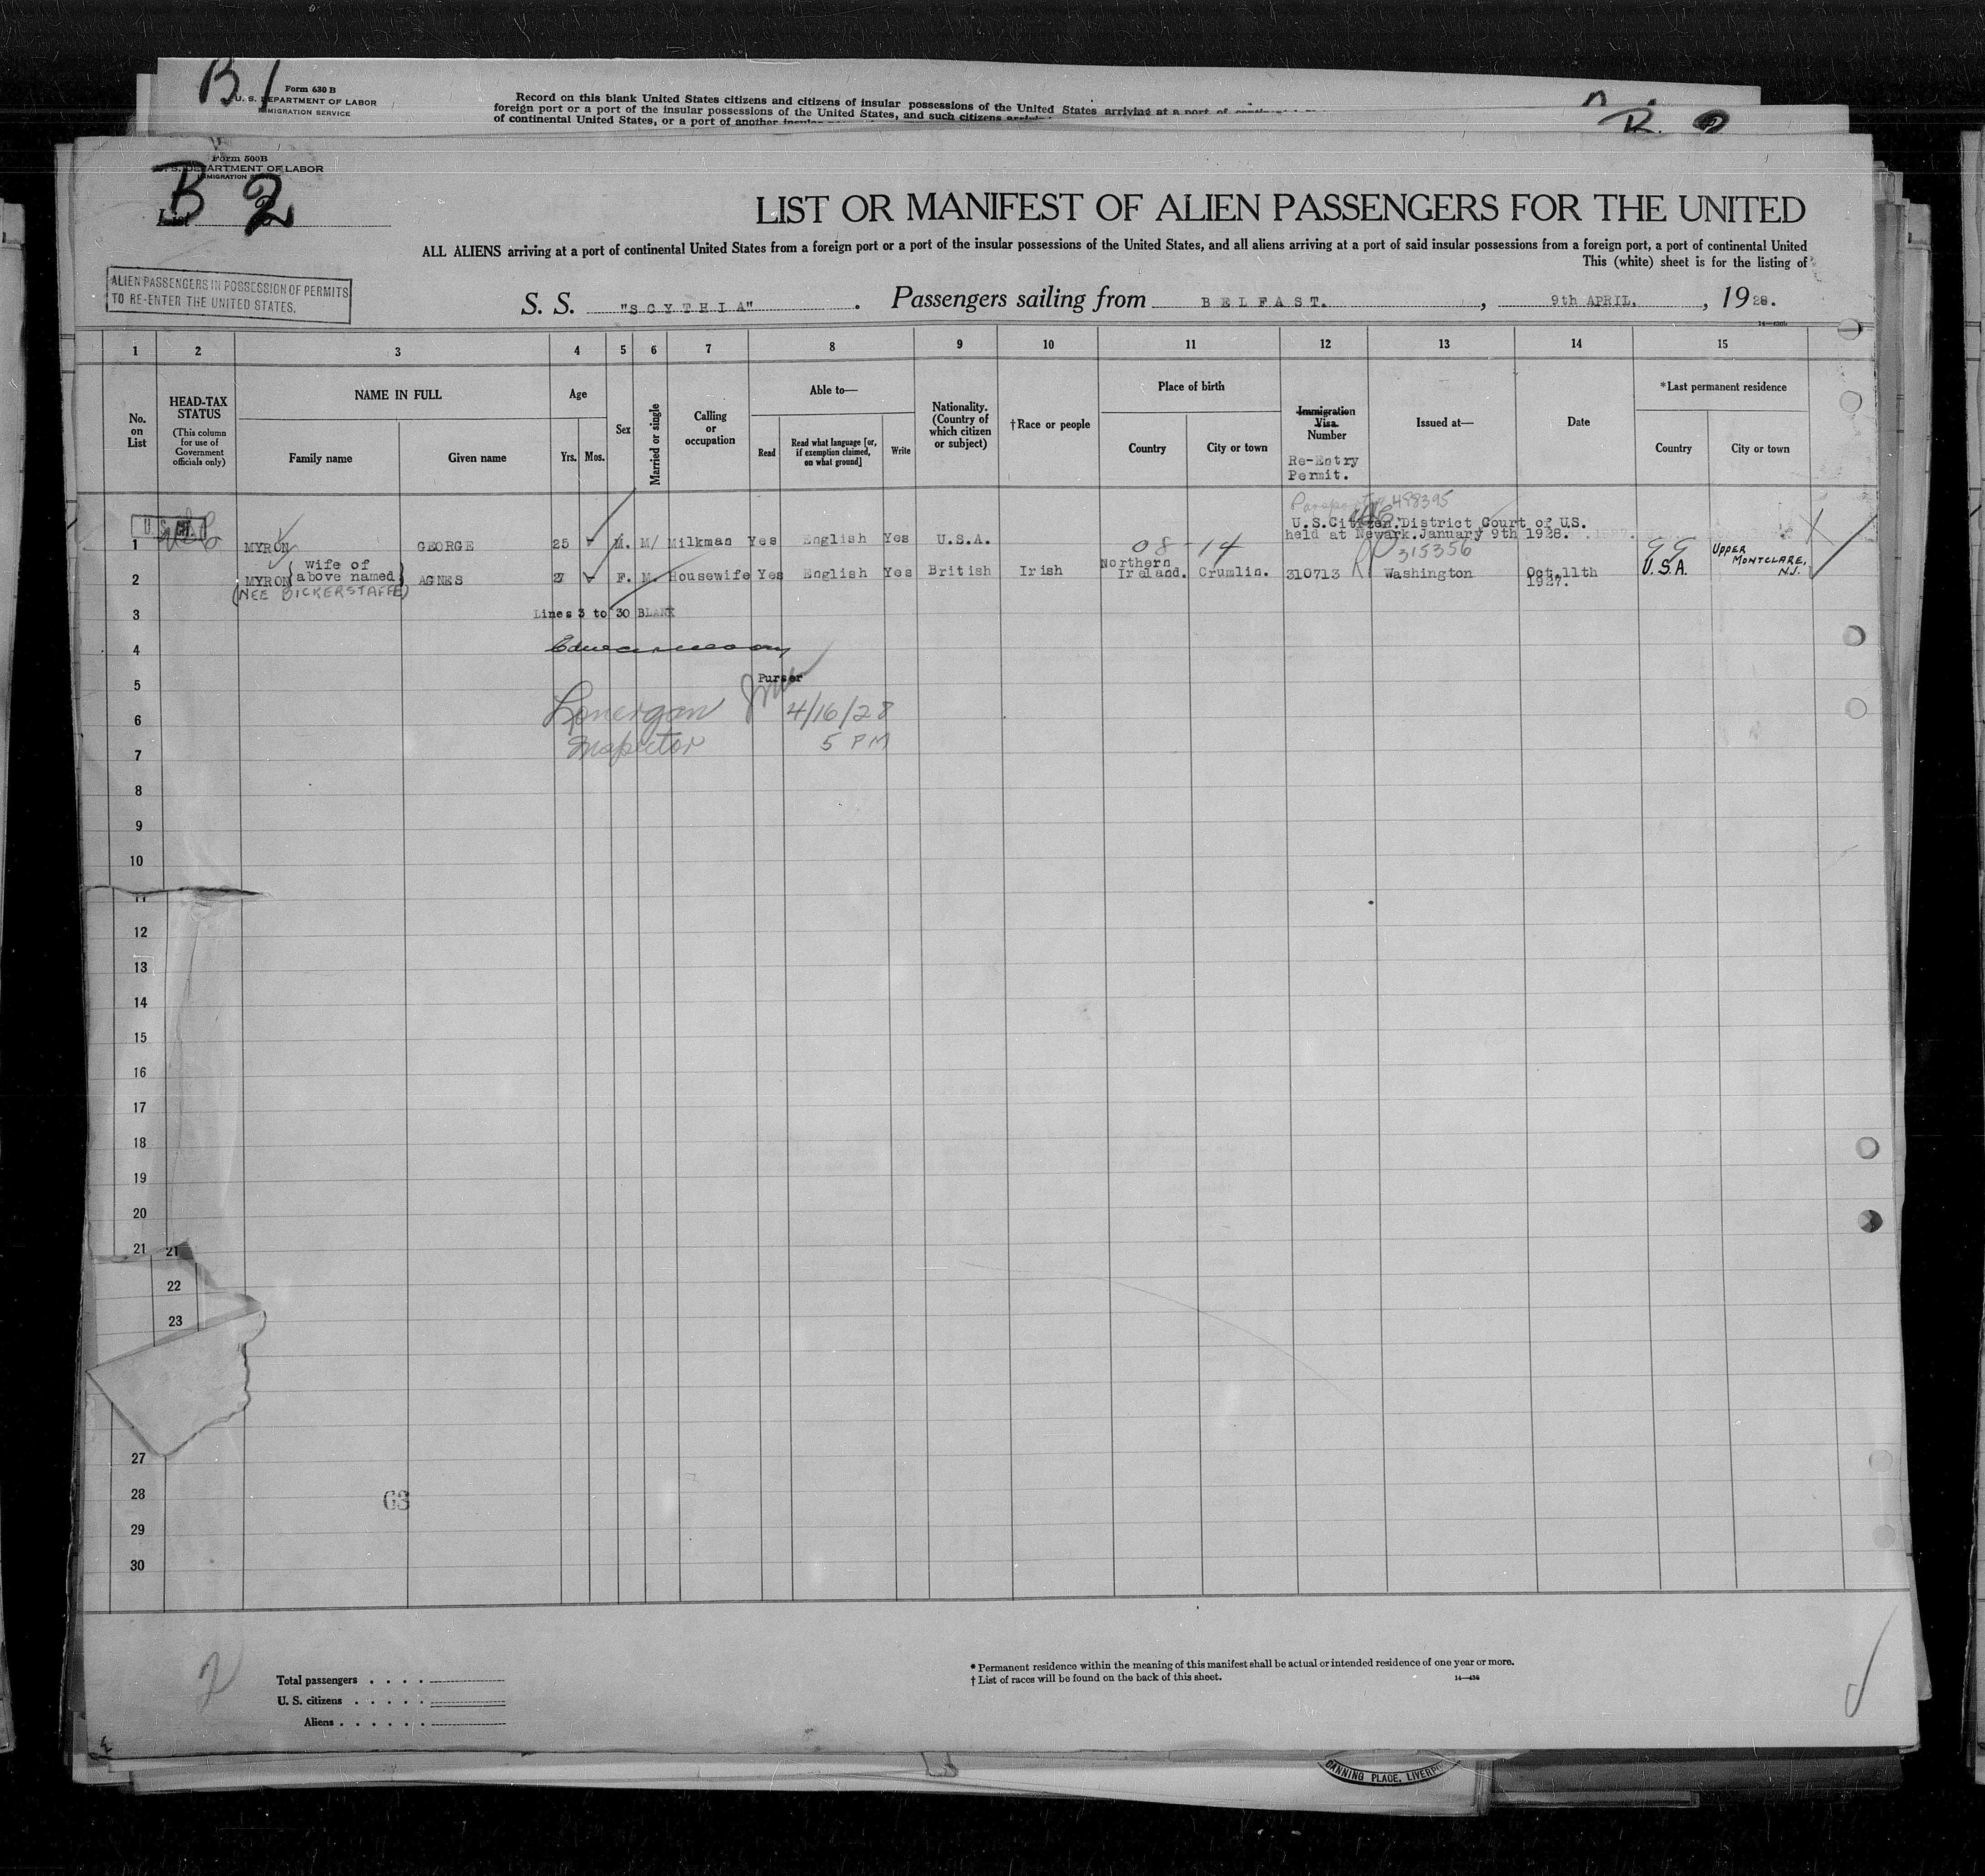 B 1
Form 630 B
U. S. DEPARTMENT OF LABOR
IMMIGRATION SERVICE
Record on this blank United States citizens and citizens of insular possessions of the United States arriving at a port of
foreign port or a port of the insular possessions of the United States, and such citizens
of continental United States, or a port of another
Form 500B
U. S. DEPARTMENT OF LABOR
IMMIGRATION
List B 2
LIST OR MANIFEST OF ALIEN PASSENGERS FOR THE UNITED
ALL ALIENS arriving at a port of continental United States from a foreign port or a port of the insular possessions of the United States, and all aliens arriving at a port of said insular possessions from a foreign port, a port of continental United
This (white) sheet is for the listing of
ALIEN PASSENGERS IN POSSESSION OF PERMITS
TO RE-ENTER THE UNITED STATES.
S. S. "SCYTHIA". Passengers sailing from BELFAST., 9th APRIL., 1928.
1 2 3 4 5 6 7 8 9 10 11 12 13 14 15
No. on List
HEAD-TAX STATUS
(This column for use of Government officials only)
NAME IN FULL
Family name Given name
Age
Yrs. Mos.
Sex
Married or single
Calling or occupation
Able to—
Read
Read what language [or, if exemption claimed, on what ground]
Write
Nationality. (Country of which citizen or subject)
†Race or people
Place of birth
Country City or town
Immigration Visa Number
Re-Entry Permit.
Issued at—
Date
*Last permanent residence
Country City or town
Passport 498395
U.S.Citizen.District Court of U.S.
held at Newark.January 9th 1928.
1 MYRON GEORGE 25 M. M/ Milkman Yes English Yes U.S.A.
08-14
315356
2 MYRON (wife of above named) AGNES 27 F. M. Housewife Yes English Yes British Irish Northern Ireland. Crumlin. 310713 Washington Oct.11th 1927. U.S.A. UPPER MONTCLARE, N.J.
(NEE BICKERSTAFFE)
3 Lines 3 to 30 BLANK
4
Purser
5
6 Lonergan 4/16/28
7 Inspector 5 PM
8
9
10
11
12
13
14
15
16
17
18
19
20
21 21
22
23
27
28 63
29
30
2
Total passengers
U. S. citizens
Aliens
* Permanent residence within the meaning of this manifest shall be actual or intended residence of one year or more.
† List of races will be found on the back of this sheet.
14—436
CANNING PLACE, LIVERPO